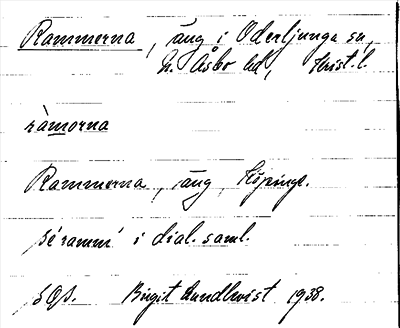 Rammerna, äng i Oderljunga sn,
N. Åsbo hd, Krist. l.
ràmorna
Rammerna, äng, Köpinge.
sé ramm' i dial. saml.
Birgit Lundkvist 1938.